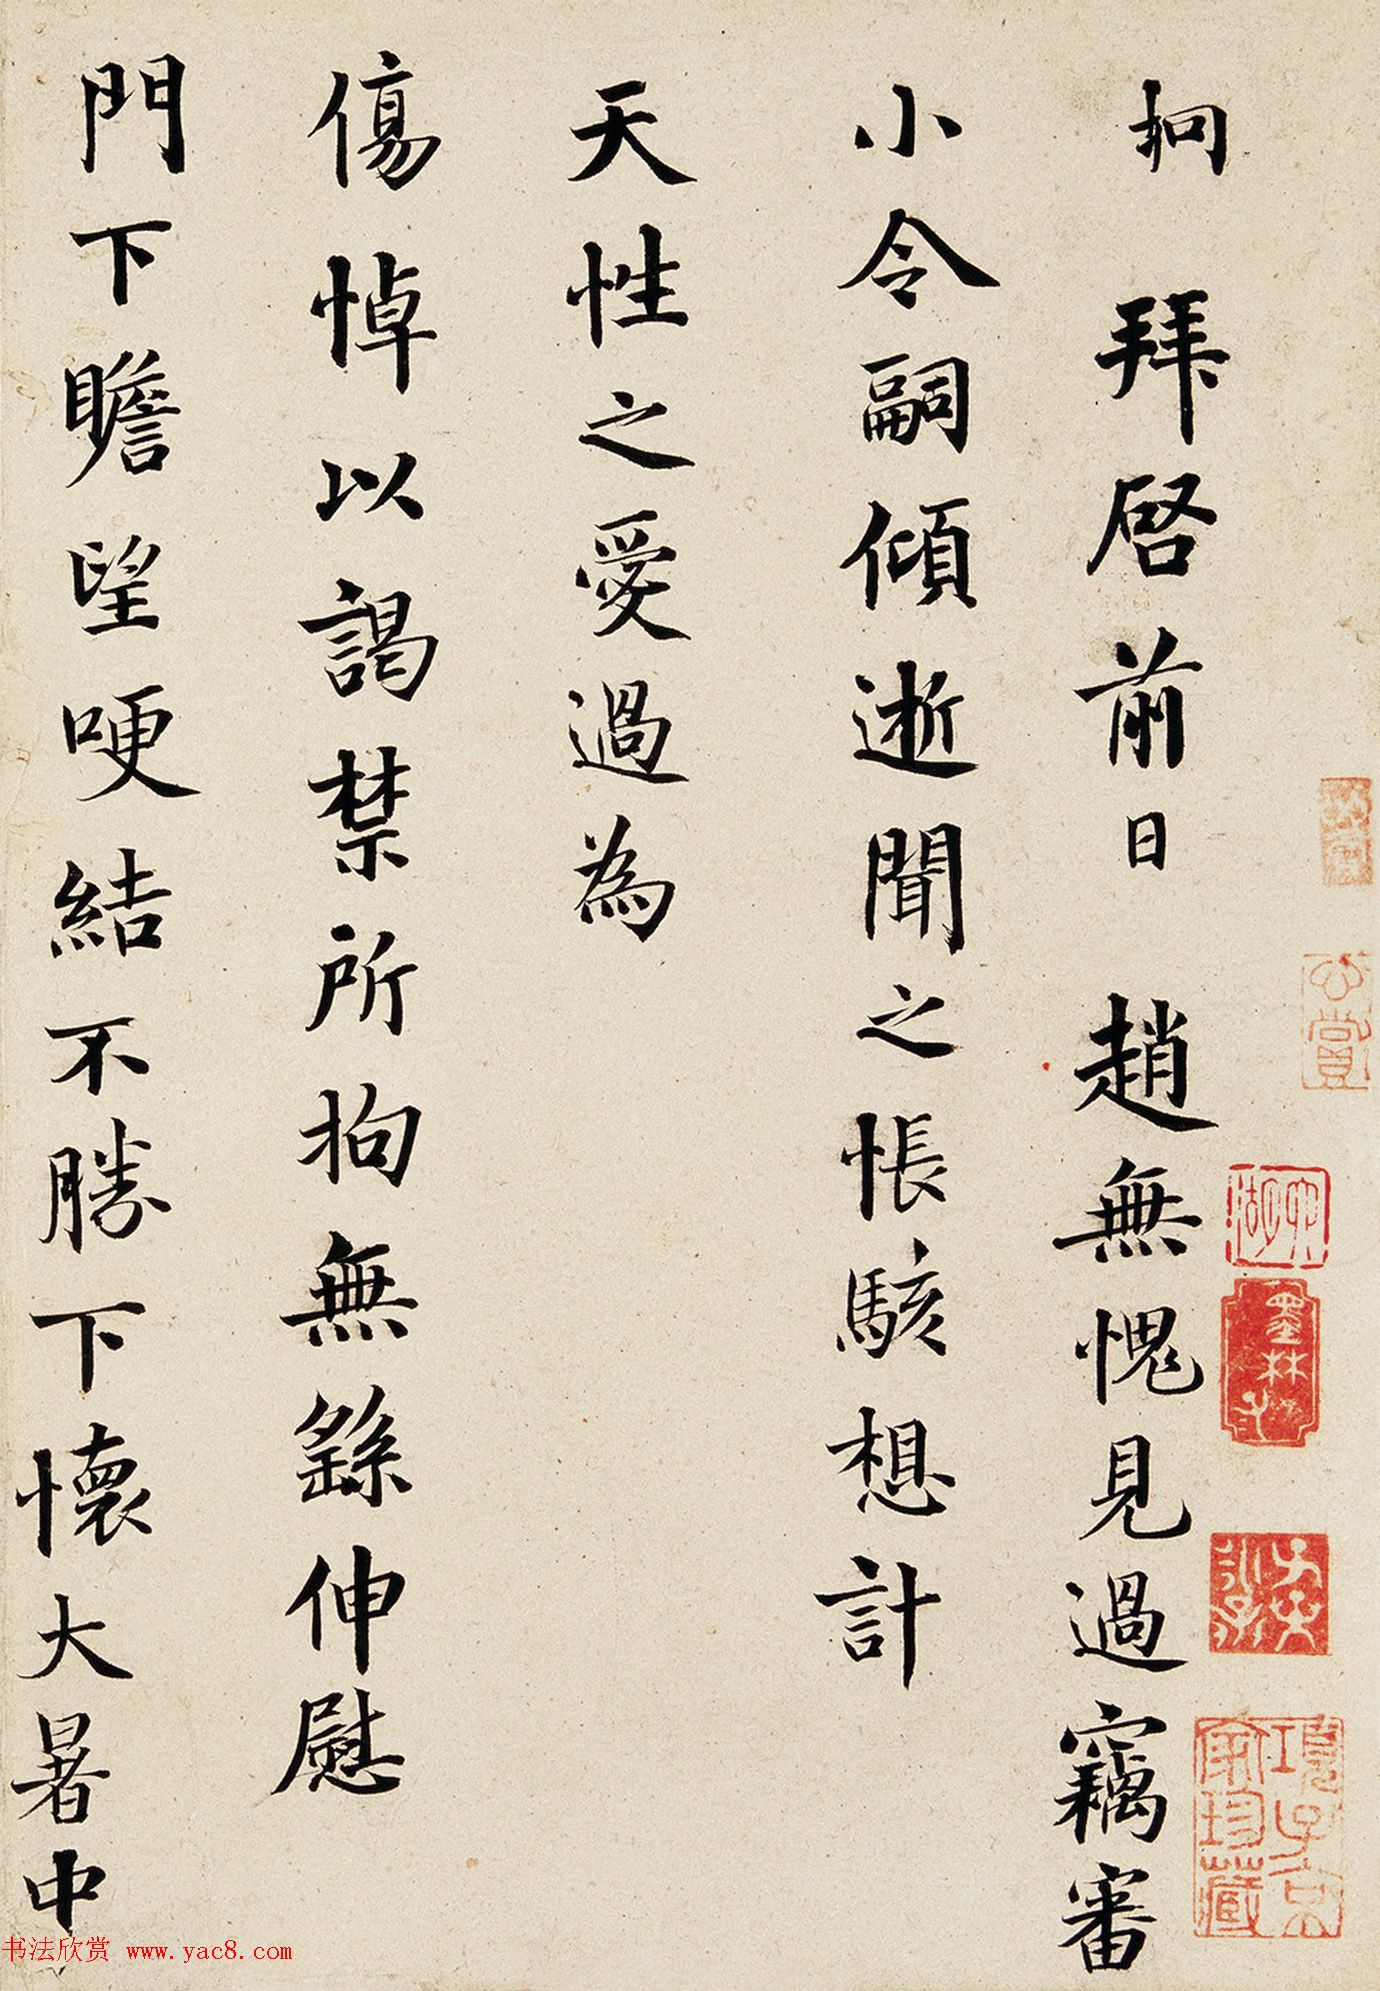 坰 拜啓前日 趙無愧見過竊審
小令嗣傾逝聞之悵駭想計
天性之愛過為
傷悼以謁禁所拘無繇伸慰
門下瞻望哽結不勝下懷大暑中
心賞
項子京家珍藏
书法欣赏 www.yac8.com